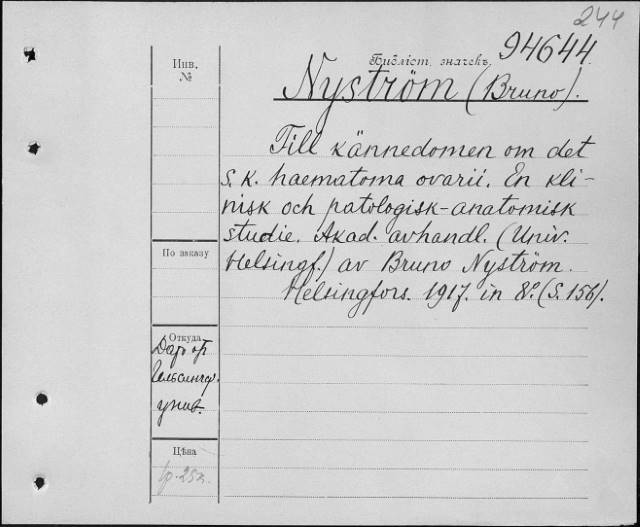 244
94644.
Инв.
№
Библіот. значекъ.
Nyström (Bruno).
Till kännedomen om det
s. k. haematoma ovarii. En kli-
nisk och patologisk-anatomisk
studie. Akad. avhandl. (Univ.
Helsingf.) av Bruno Nyström.
Helsingfors. 1917. in 8º. (S. 156).
По заказу
Откуда
Даръ от
Гельсингф.
унив.
Цѣна
1р. 25к.